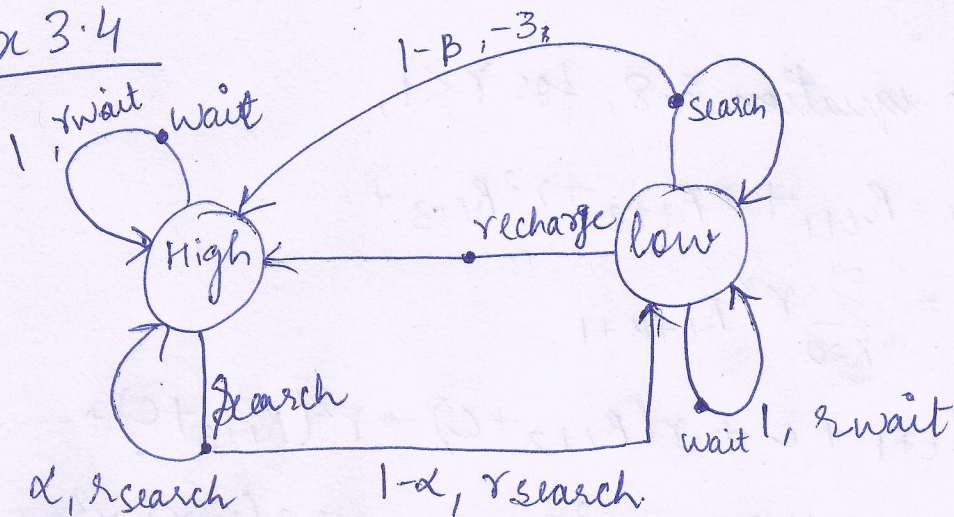 x 3.4
1-β, -3
1, rwait
wait
search
High
recharge
low
search
wait
1, rwait
α, rsearch
1-α, rsearch.